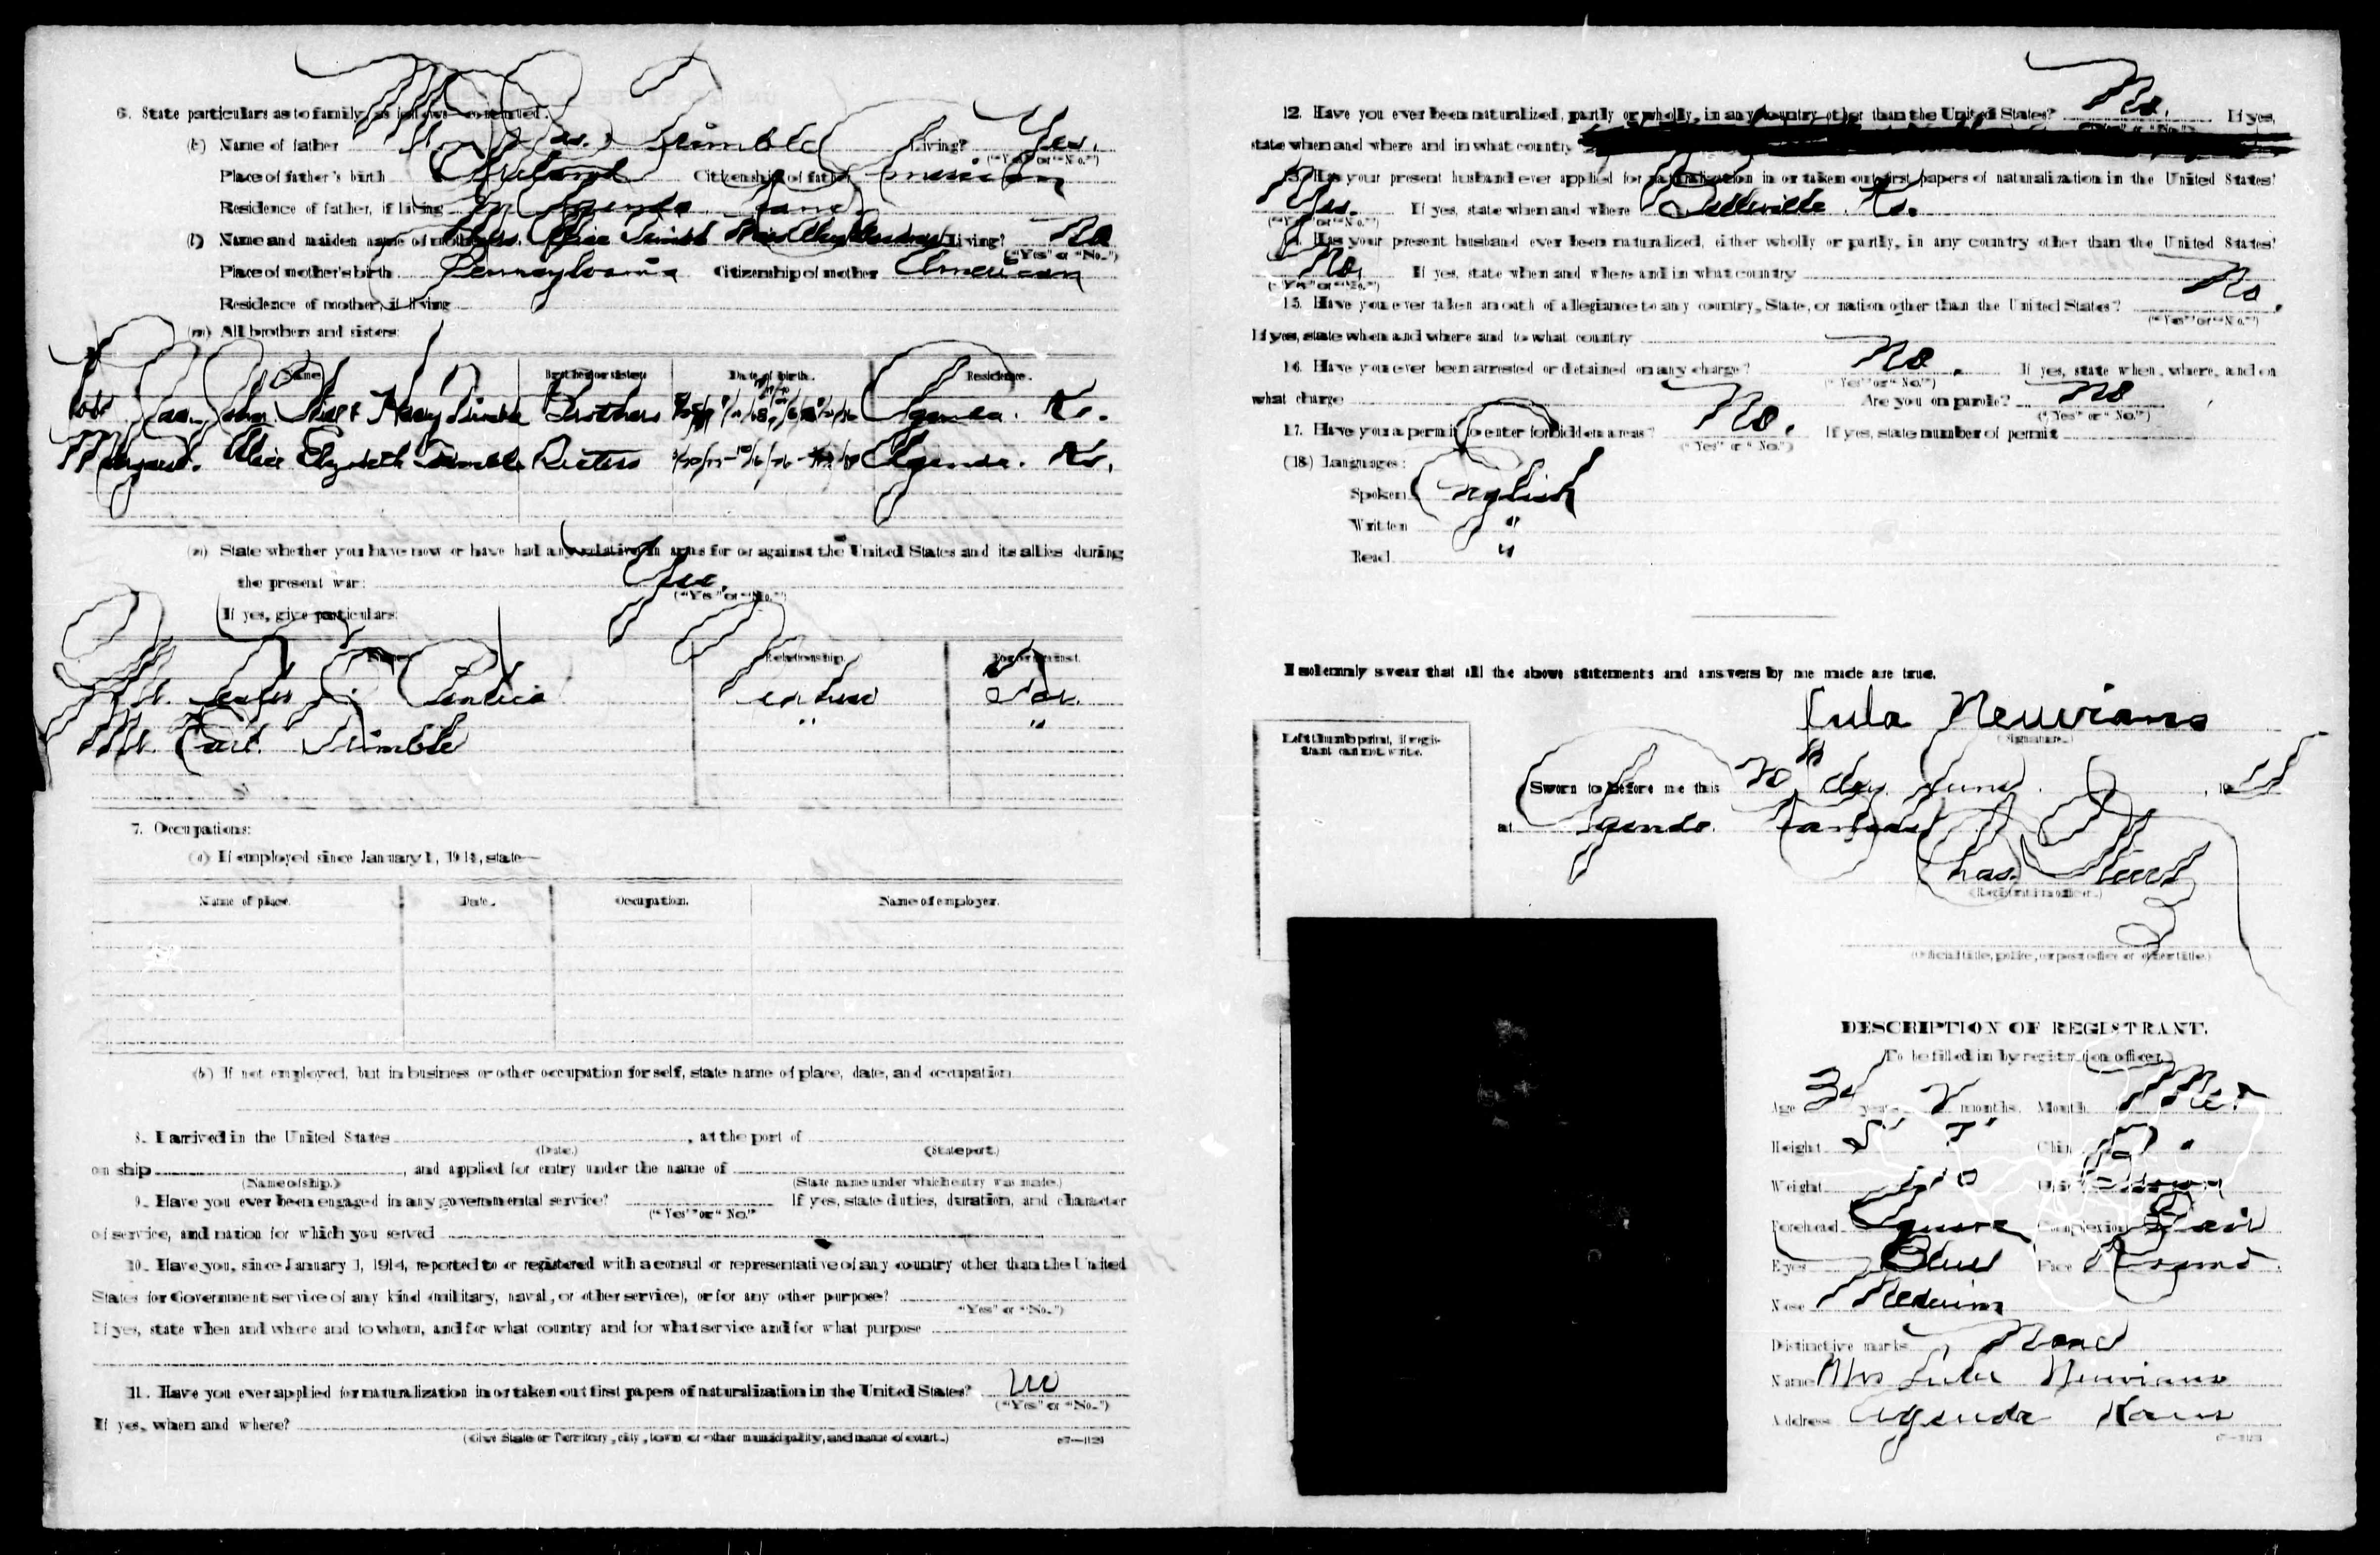 6. State particulars as to family, as follows—continued.
(k) Name of father Mr. Jas. Trimble Living? Yes.
("Yes" or "No.")
Place of father's birth Ireland Citizenship of father American
Residence of father, if living In Agenda Kans.
(l) Name and maiden name of mother Mrs. Alice Trimble Living? No
("Yes" or "No.")
Place of mother's birth Pennsylvania Citizenship of mother American
Residence of mother, if living
(m) All brothers and sisters:
Name. Brother or sister. Date of birth. Residence.
John Harry Trimble Brothers Agenda. Ks.
Margaret. Alice Elizabeth Trimble Sisters Agenda. Ks.
(n) State whether you have now or have had any relative in arms for or against the United States and its allies during
the present war: Yes.
("Yes" or "No.")
If yes, give particulars:
Name. Relationship. For or against.
Mr. Cousin For.
Mr. Earl. Trimble " "
7. Occupations:
(a) If employed since January 1, 1914, state—
Name of place. Date. Occupation. Name of employer.
(b) If not employed, but in business or other occupation for self, state name of place, date, and occupation
8. I arrived in the United States , at the port of
(Date.) (State port.)
on ship , and applied for entry under the name of
(Name of ship.) (State name under which entry was made.)
9. Have you ever been engaged in any governmental service? If yes, state duties, duration, and character
("Yes" or "No.")
of service, and nation for which you served
10. Have you, since January 1, 1914, reported to or registered with a consul or representative of any country other than the United
States for Government service of any kind (military, naval, or other service), or for any other purpose?
"Yes" or "No.")
If yes, state when and where and to whom, and for what country and for what service and for what purpose
11. Have you ever applied for naturalization in or taken out first papers of naturalization in the United States? no
("Yes" or "No.")
If yes, when and where?
(Give State or Territory, city, town or other municipality, and name of court.)
12. Have you ever been naturalized, partly or wholly, in any country other than the United States? No. If yes,
("Yes" or "No.")
state when and where and in what country
13. Has your present husband ever applied for naturalization in or taken out first papers of naturalization in the United States?
Yes. If yes, state when and where Belleville Ks.
("Yes" or "No.")
14. Has your present husband ever been naturalized, either wholly or partly, in any country other than the United States?
No. If yes, state when and where and in what country
("Yes" or "No.")
15. Have you ever taken an oath of allegiance to any country, State, or nation other than the United States? No.
("Yes" or "No.")
If yes, state when and where and to what country
16. Have you ever been arrested or detained on any charge? No. If yes, state when, where, and on
("Yes" or "No.")
what charge Are you on parole? No
("Yes" or "No.")
17. Have you a permit to enter forbidden areas? No. If yes, state number of permit
("Yes" or "No.")
(18) Languages:
Spoken English
Written "
Read "
I solemnly swear that all the above statements and answers by me made are true.
Lula Neuvians
(Signature.)
Left thumb print, if regis-
trant can not write.
Sworn to before me this 20th day June , 19
at Agenda. Kansas
Chas.
(Registration officer.)
(Official title, police, or post office or other title.)
DESCRIPTION OF REGISTRANT.
(To be filled in by registration officer.)
Age years 2 months. Mouth
Height 5' 7" Chin
Weight Hair Brown
Forehead Square Complexion Fair
Eyes Blue Face Round.
Nose Medium
Distinctive marks None
Name Mrs Lula Neuvians
Address Agenda Kans